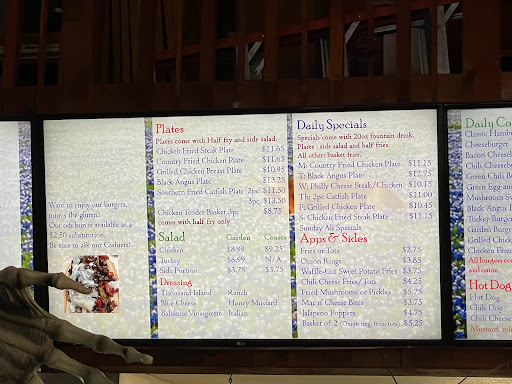 Want to enjoy our burgers,
minus the gluten?
Our odi bun is available as a
$2.50 substitution.
Be sure to ask our Cashiers!
Plates
Plates come with Half fry and side salad.
Chicken Fried Steak Plate $11.65
Country Fried Chicken Plate $11.65
Grilled Chicken Breast Plate $10.95
Black Angus Plate $13.25
Southern Fried Catfish Plate 2pc $11.50
3pc $13.50
Chicken Tender Basket 3pc $8.75
comes with half fry only
Salad Garden Caesar
Chicken $8.99 $9.25
Turkey $8.99 N/A
Side Portion $3.75 $3.75
Dressing
Thousand Island Ranch
Blue Cheese Honey Mustard
Balsamic Vinaigrette Italian
Daily Specials
Specials come with 20oz fountain drink.
Plates : side salad and half fries
All other: basket fries.
M: Country Fried Chicken Plate $11.15
T: Black Angus Plate $12.75
W: Philly Cheese Steak/Chicken $10.15
Th: 2pc Catfish Plate $11.00
F: Grilled Chicken Plate $10.45
S: Chicken Fried Steak Plate $11.15
Sunday All Specials
Apps & Sides
Fries or Tots $2.75
Onion Rings $3.85
Waffle-Cut Sweet Potato Fries $3.75
Chili Cheese Fries/Tots $4.25
Fried Mushrooms or Pickles $6.75
Mac n' Cheese Bites $3.75
Jalapeno Poppers $4.75
Basket of 2 (Onion ring, fries, tots) $5.25
Daily Co
Classic Hamb
Cheeseburger
Bacon Cheese
Chili Cheeseb
Chili Green
Green Egg an
Mushroom Sw
Black Angus
Turkey Burge
Garden Burg
Grilled Chick
Chicken Fried
All burgers co
and onion
Hot Dog
Hot Dog
Chili Dog
Chili Cheese
Mustard, reli
LG